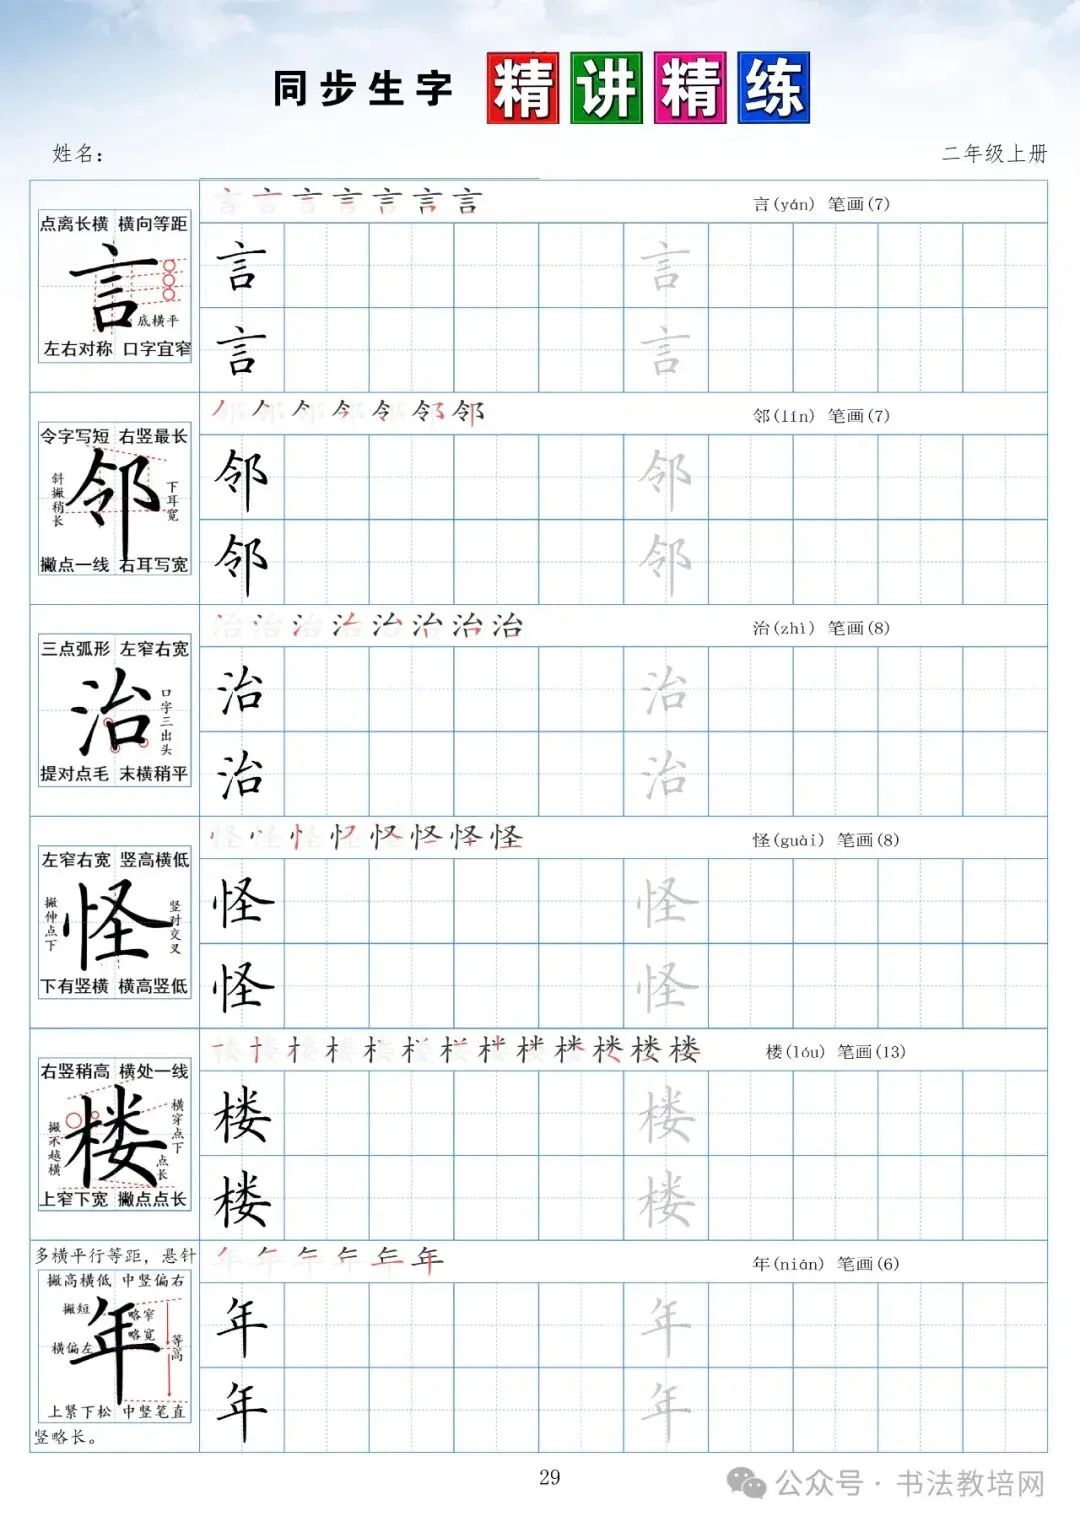 同步生字 精讲精练
姓名： 二年级上册
言(yán) 笔画(7)
点离长横 横向等距
言
底横平
左右对称 口字宜窄
言 言
言 言
邻(lín) 笔画(7)
令字写短 右竖最长
斜撇稍长
邻
下耳宽
撇点一线 右耳写宽
邻 邻
邻 邻
治(zhì) 笔画(8)
三点弧形 左窄右宽
治
口字三出头
提对点毛 末横稍平
治 治
治 治
怪(guài) 笔画(8)
左窄右宽 竖高横低
撇伸点下
怪
竖对交叉
下有竖横 横高竖低
怪 怪
怪 怪
楼(lóu) 笔画(13)
右竖稍高 横处一线
撇不越横
楼
横穿点下
点长
上窄下宽 撇点点长
楼 楼
楼 楼
年(nián) 笔画(6)
多横平行等距，悬针
撇高横低 中竖偏右
撇短
略窄
略宽
年
横偏左
等高
上紧下松 中竖笔直
竖略长。
年 年
年 年
29
公众号·书法教培网